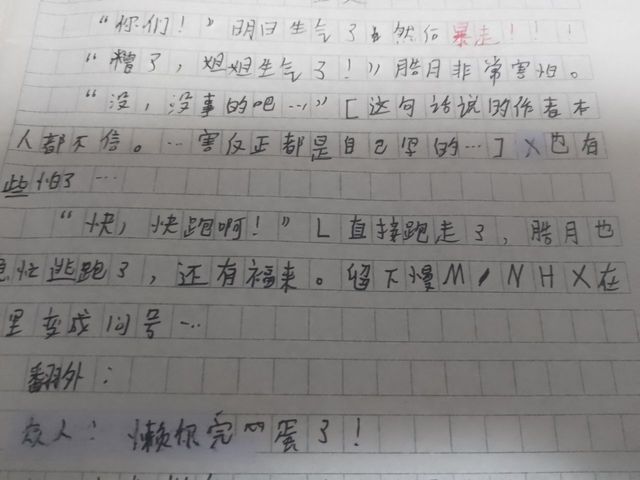 “你们！”明日生气了且然后暴走！！！
“糟了，姐姐生气了！”皓月非常害怕。
“没，没事的吧…”[这句话说的作者本
人都不信。…害反正都是自己写的…]X也有
些怕了…
“快，快跑啊！”L直接跑走了，皓月也
急忙逃跑了，还有福来。留下慢M、N H X在
里变成问号…
翻外：
众人：懒你完 蛋了！